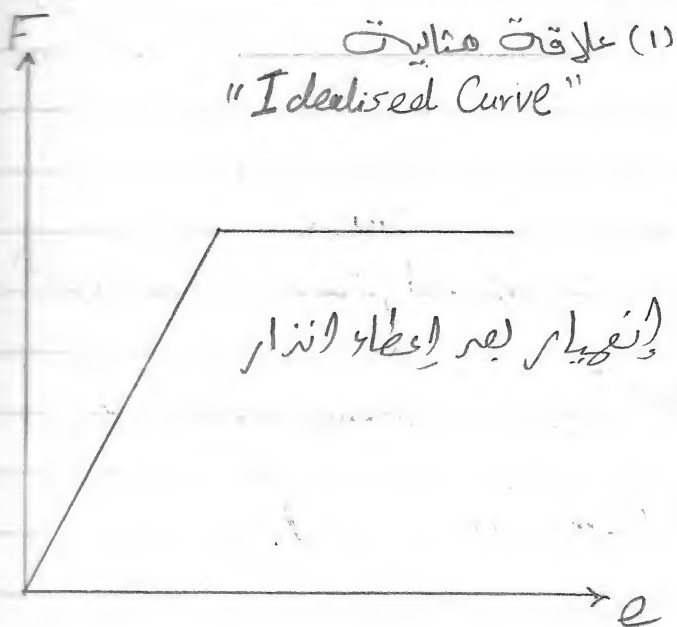 (1) علاقة مثالية
"Idealised Curve"
F
إنهيار بعد إعطاء انذار
e